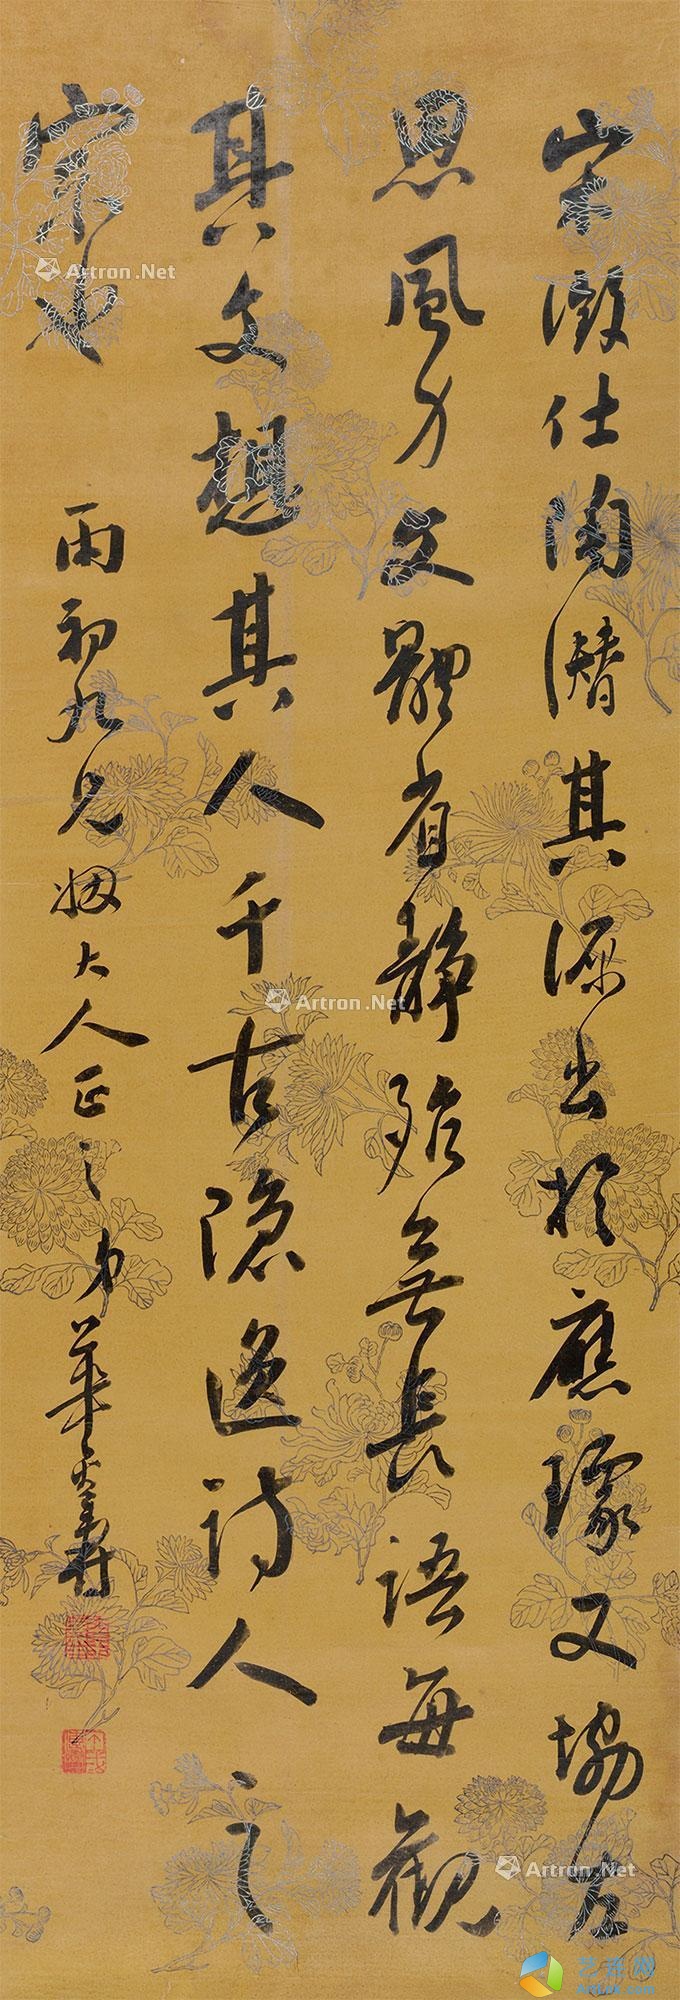 宋徵仕陶潛其源出於應璩又協左
思風力文體省靜殆無長語每觀
其文想其人千古隱逸詩人之
宗也
雨初九兄姻大人正之弟
Artron.Net
Artron.Net
Artron.Net
Artron.Net